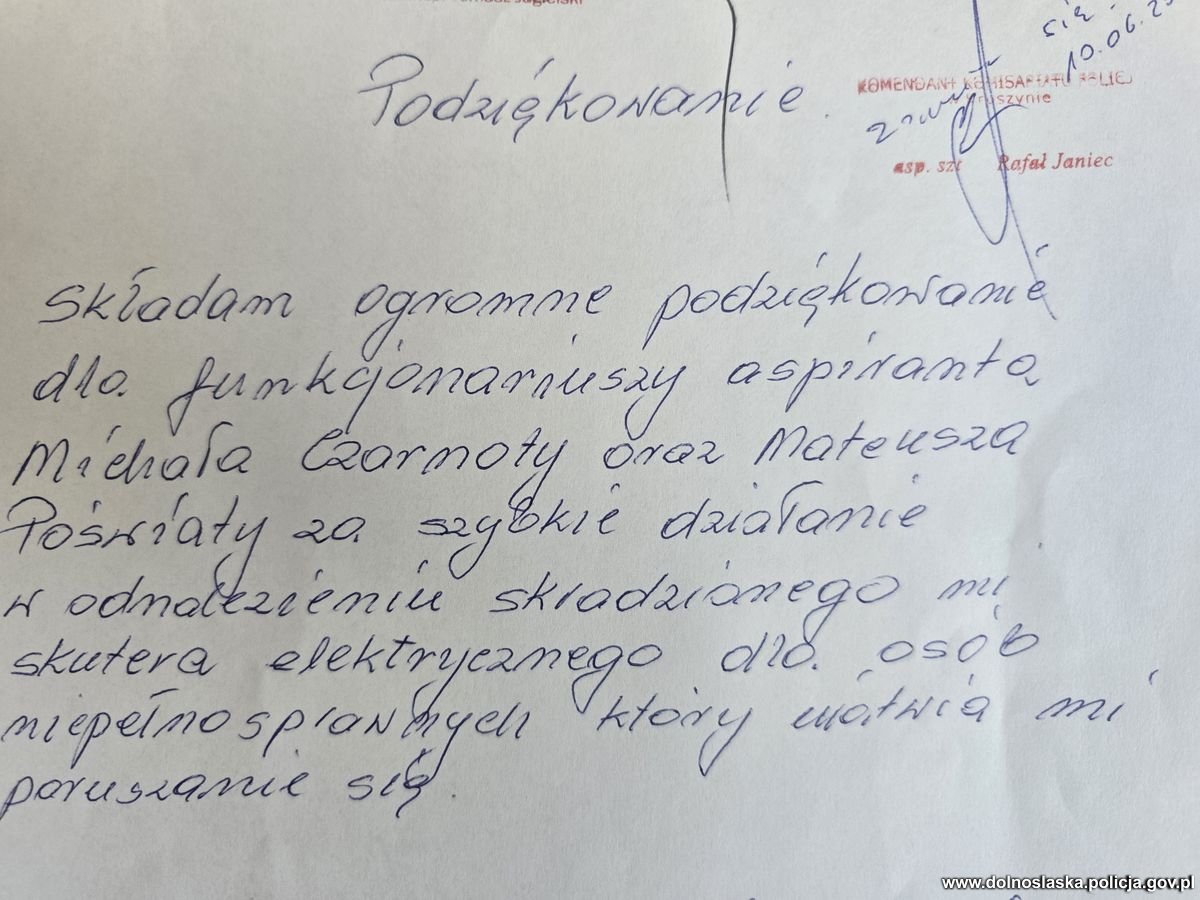 się
10.06.25
Podziękowanie.
KOMENDANT KOMISARIATU POLICJI
asp. szt Rafał Janiec
Składam ogromne podziękowanie
dla funkcjonariuszy aspiranta
Michała Czarnoty oraz Mateusza
Pośwíaty za szybkie działanie
w odnalezieniu skradzionego mi
skutera elektrycznego dla osób
niepełnosprawnych który ułatwia mi
poruszanie się.
www.dolnoslaska.policja.gov.pl